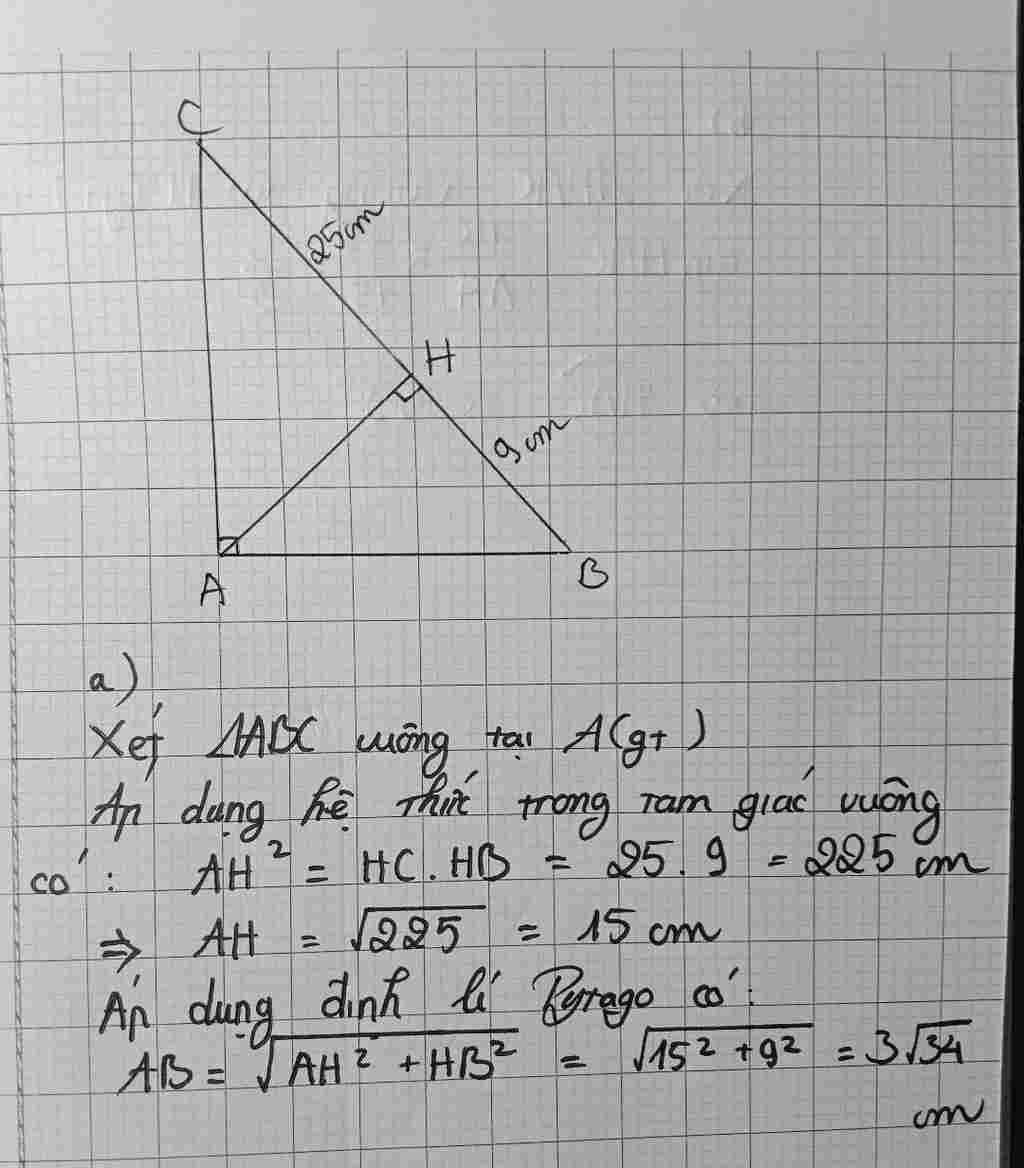 C
25cm
H
9cm
A
B
a)
Xét ΔABC vuông tại A(gt)
Áp dụng hệ thức trong tam giác vuông
có: AH² = HC.HB = 25.9 = 225 cm
⇒ AH = √225 = 15 cm
Áp dụng định lí Pytago có:
AB = √(AH² + HB²) = √(15² + 9²) = 3√34
cm